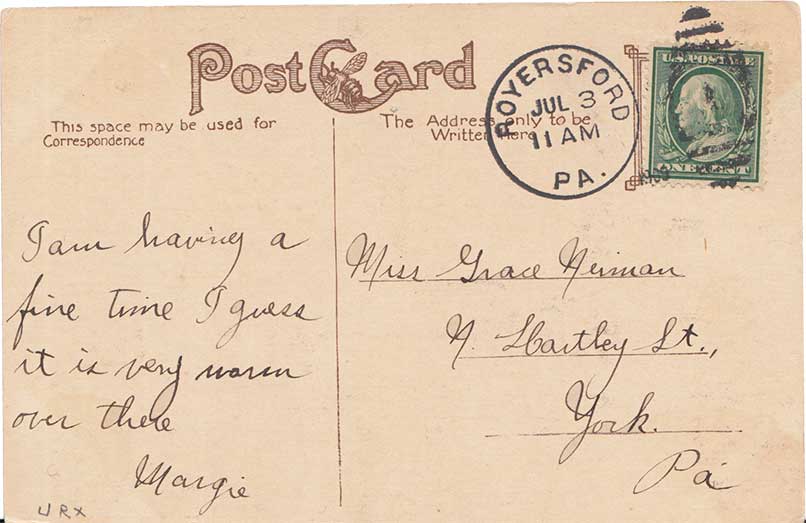 Post Card
This space may be used for
Correspondence
The Address only to be
Written Here
ROYERSFORD
JUL 3
11 AM
PA.
U.S. POSTAGE
ONE CENT
I am having a
fine time I guess
it is very warm
over there
Margie
Miss Grace Neiman
N. Hartley St.,
York.
Pa
URX